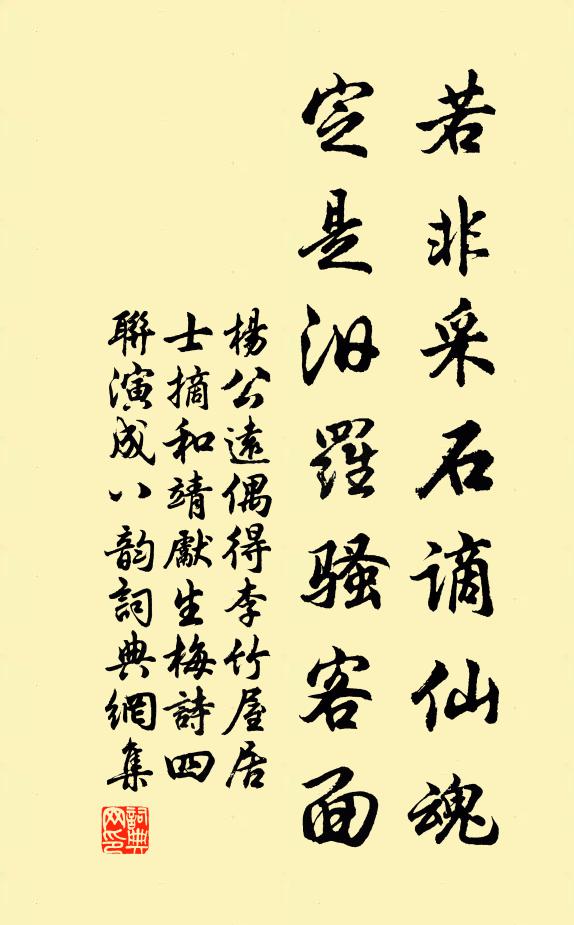 若非采石謫仙魂
定是汨羅騷客面
楊公遠偶得李竹屋居
士摘和靖獻生梅詩四
聯演成八韵詞典網集
詞典
网印